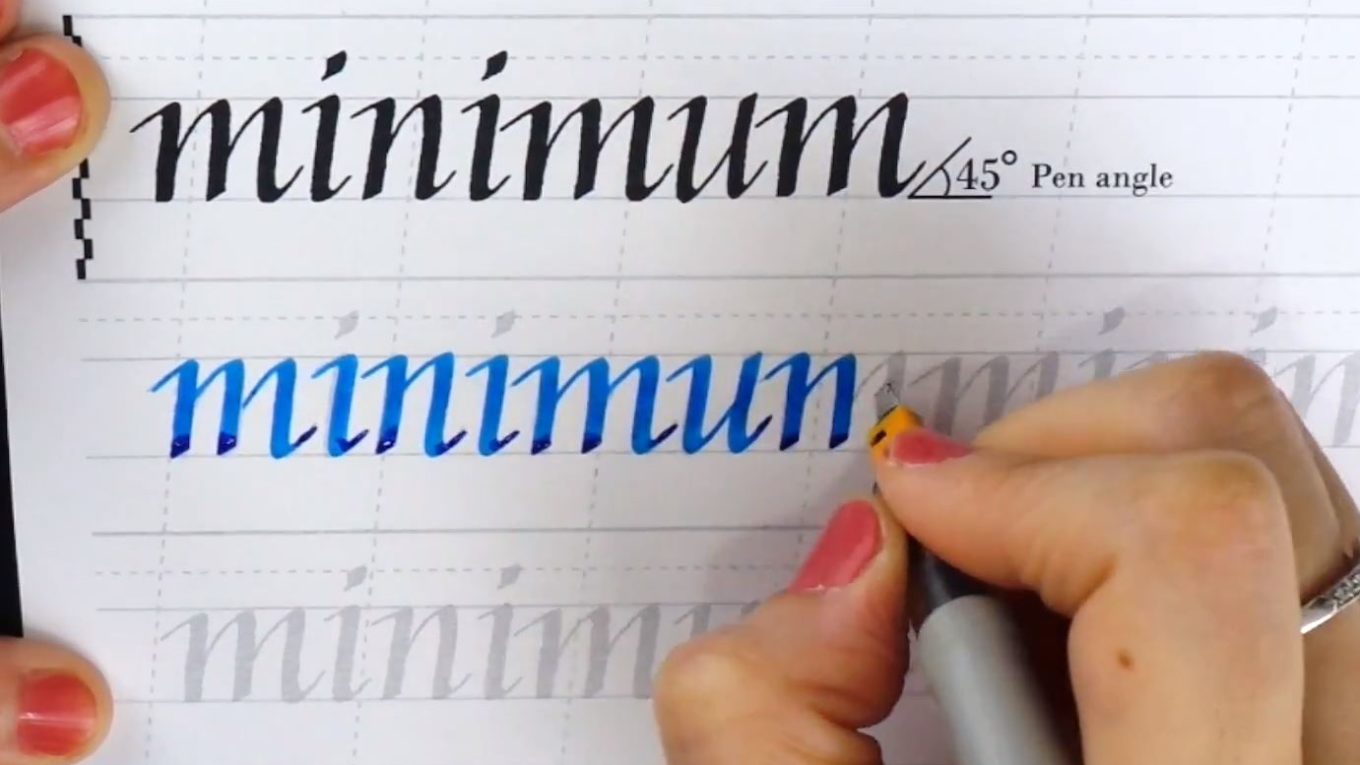 minimum 45° Pen angle
minimum
minimu